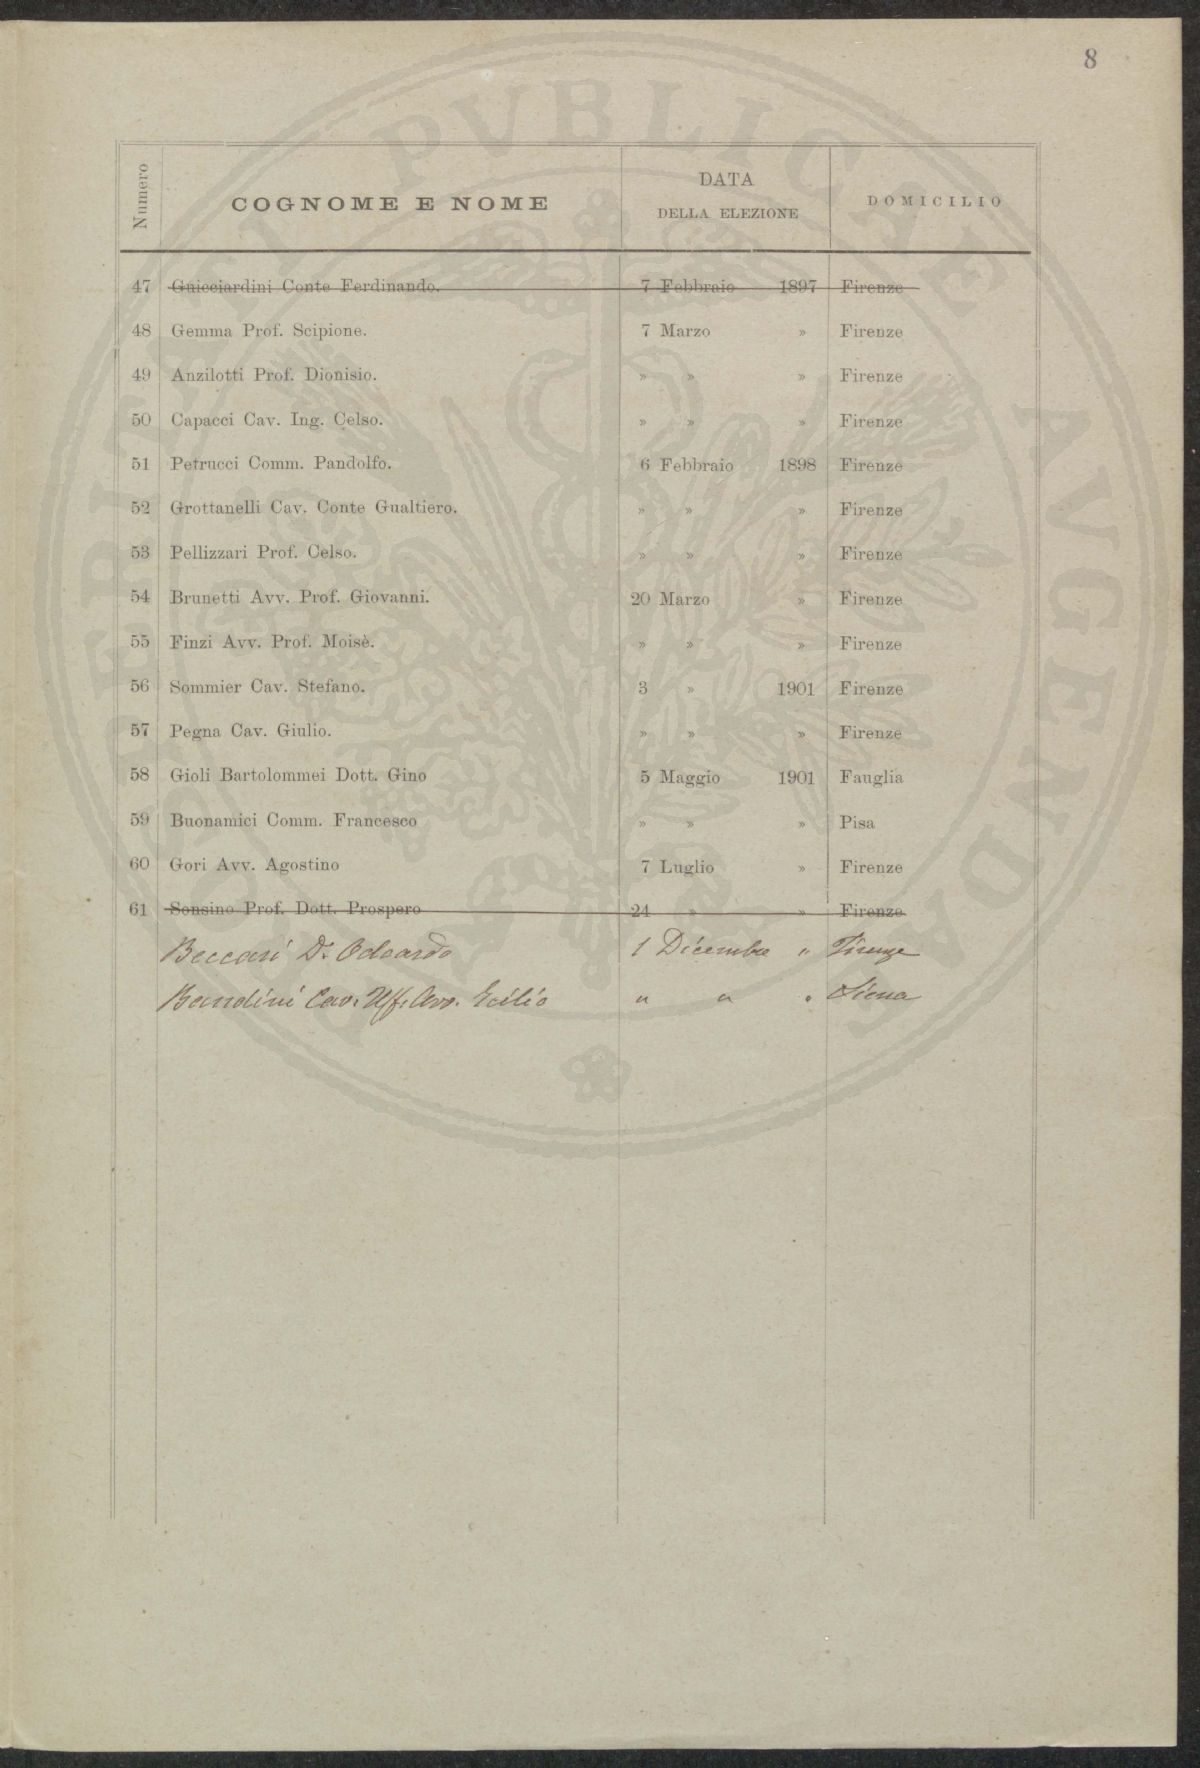 8
Numero COGNOME E NOME DATA DELLA ELEZIONE DOMICILIO
47 Guicciardini Conte Ferdinando. 7 Febbraio 1897 Firenze
48 Gemma Prof. Scipione. 7 Marzo » Firenze
49 Anzilotti Prof. Dionisio. » » » Firenze
50 Capacci Cav. Ing. Celso. » » » Firenze
51 Petrucci Comm. Pandolfo. 6 Febbraio 1898 Firenze
52 Grottanelli Cav. Conte Gualtiero. » » » Firenze
53 Pellizzari Prof. Celso. » » » Firenze
54 Brunetti Avv. Prof. Giovanni. 20 Marzo » Firenze
55 Finzi Avv. Prof. Moisè. » » » Firenze
56 Sommier Cav. Stefano. 3 » 1901 Firenze
57 Pegna Cav. Giulio. » » » Firenze
58 Gioli Bartolommei Dott. Gino 5 Maggio 1901 Fauglia
59 Buonamici Comm. Francesco » » » Pisa
60 Gori Avv. Agostino 7 Luglio » Firenze
61 Sonsino Prof. Dott. Prospero 24 » » Firenze
Beccari Dr. Odoardo 1 Dicembre " Firenze
Bandini Cav. Uff. Avv. Icilio " " " Siena